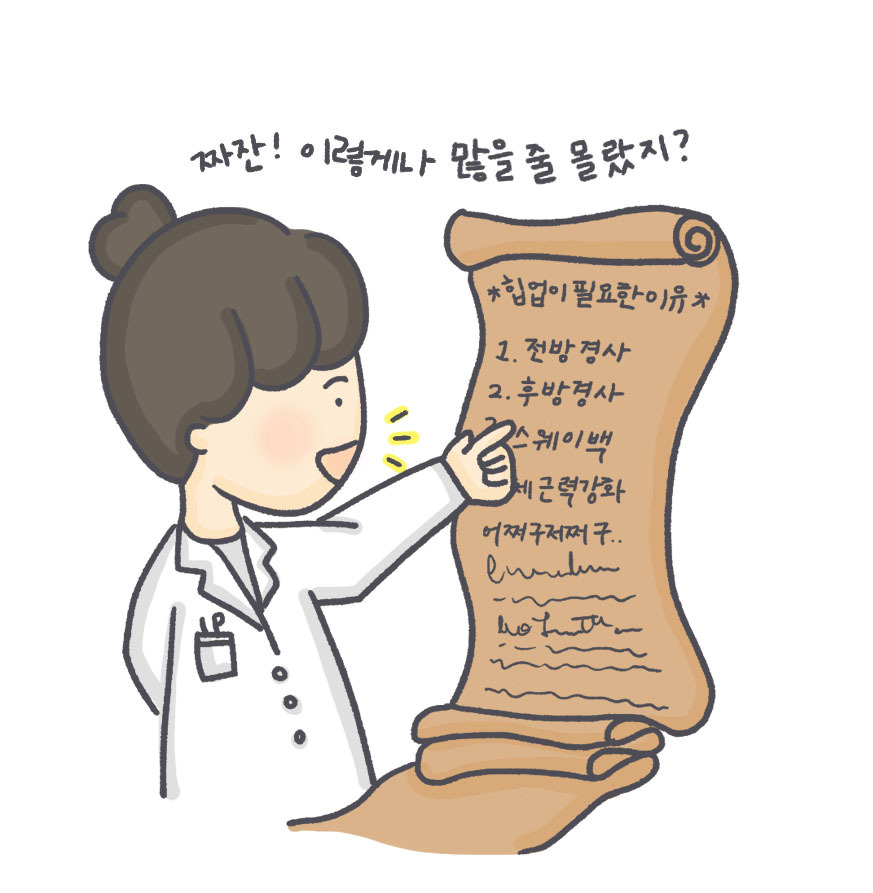 짜잔! 이렇게나 많을 줄 몰랐지?
*힙업이 필요한 이유*
1. 전방경사
2. 후방경사
스웨이백
근력강화
어쩌구저쩌구..